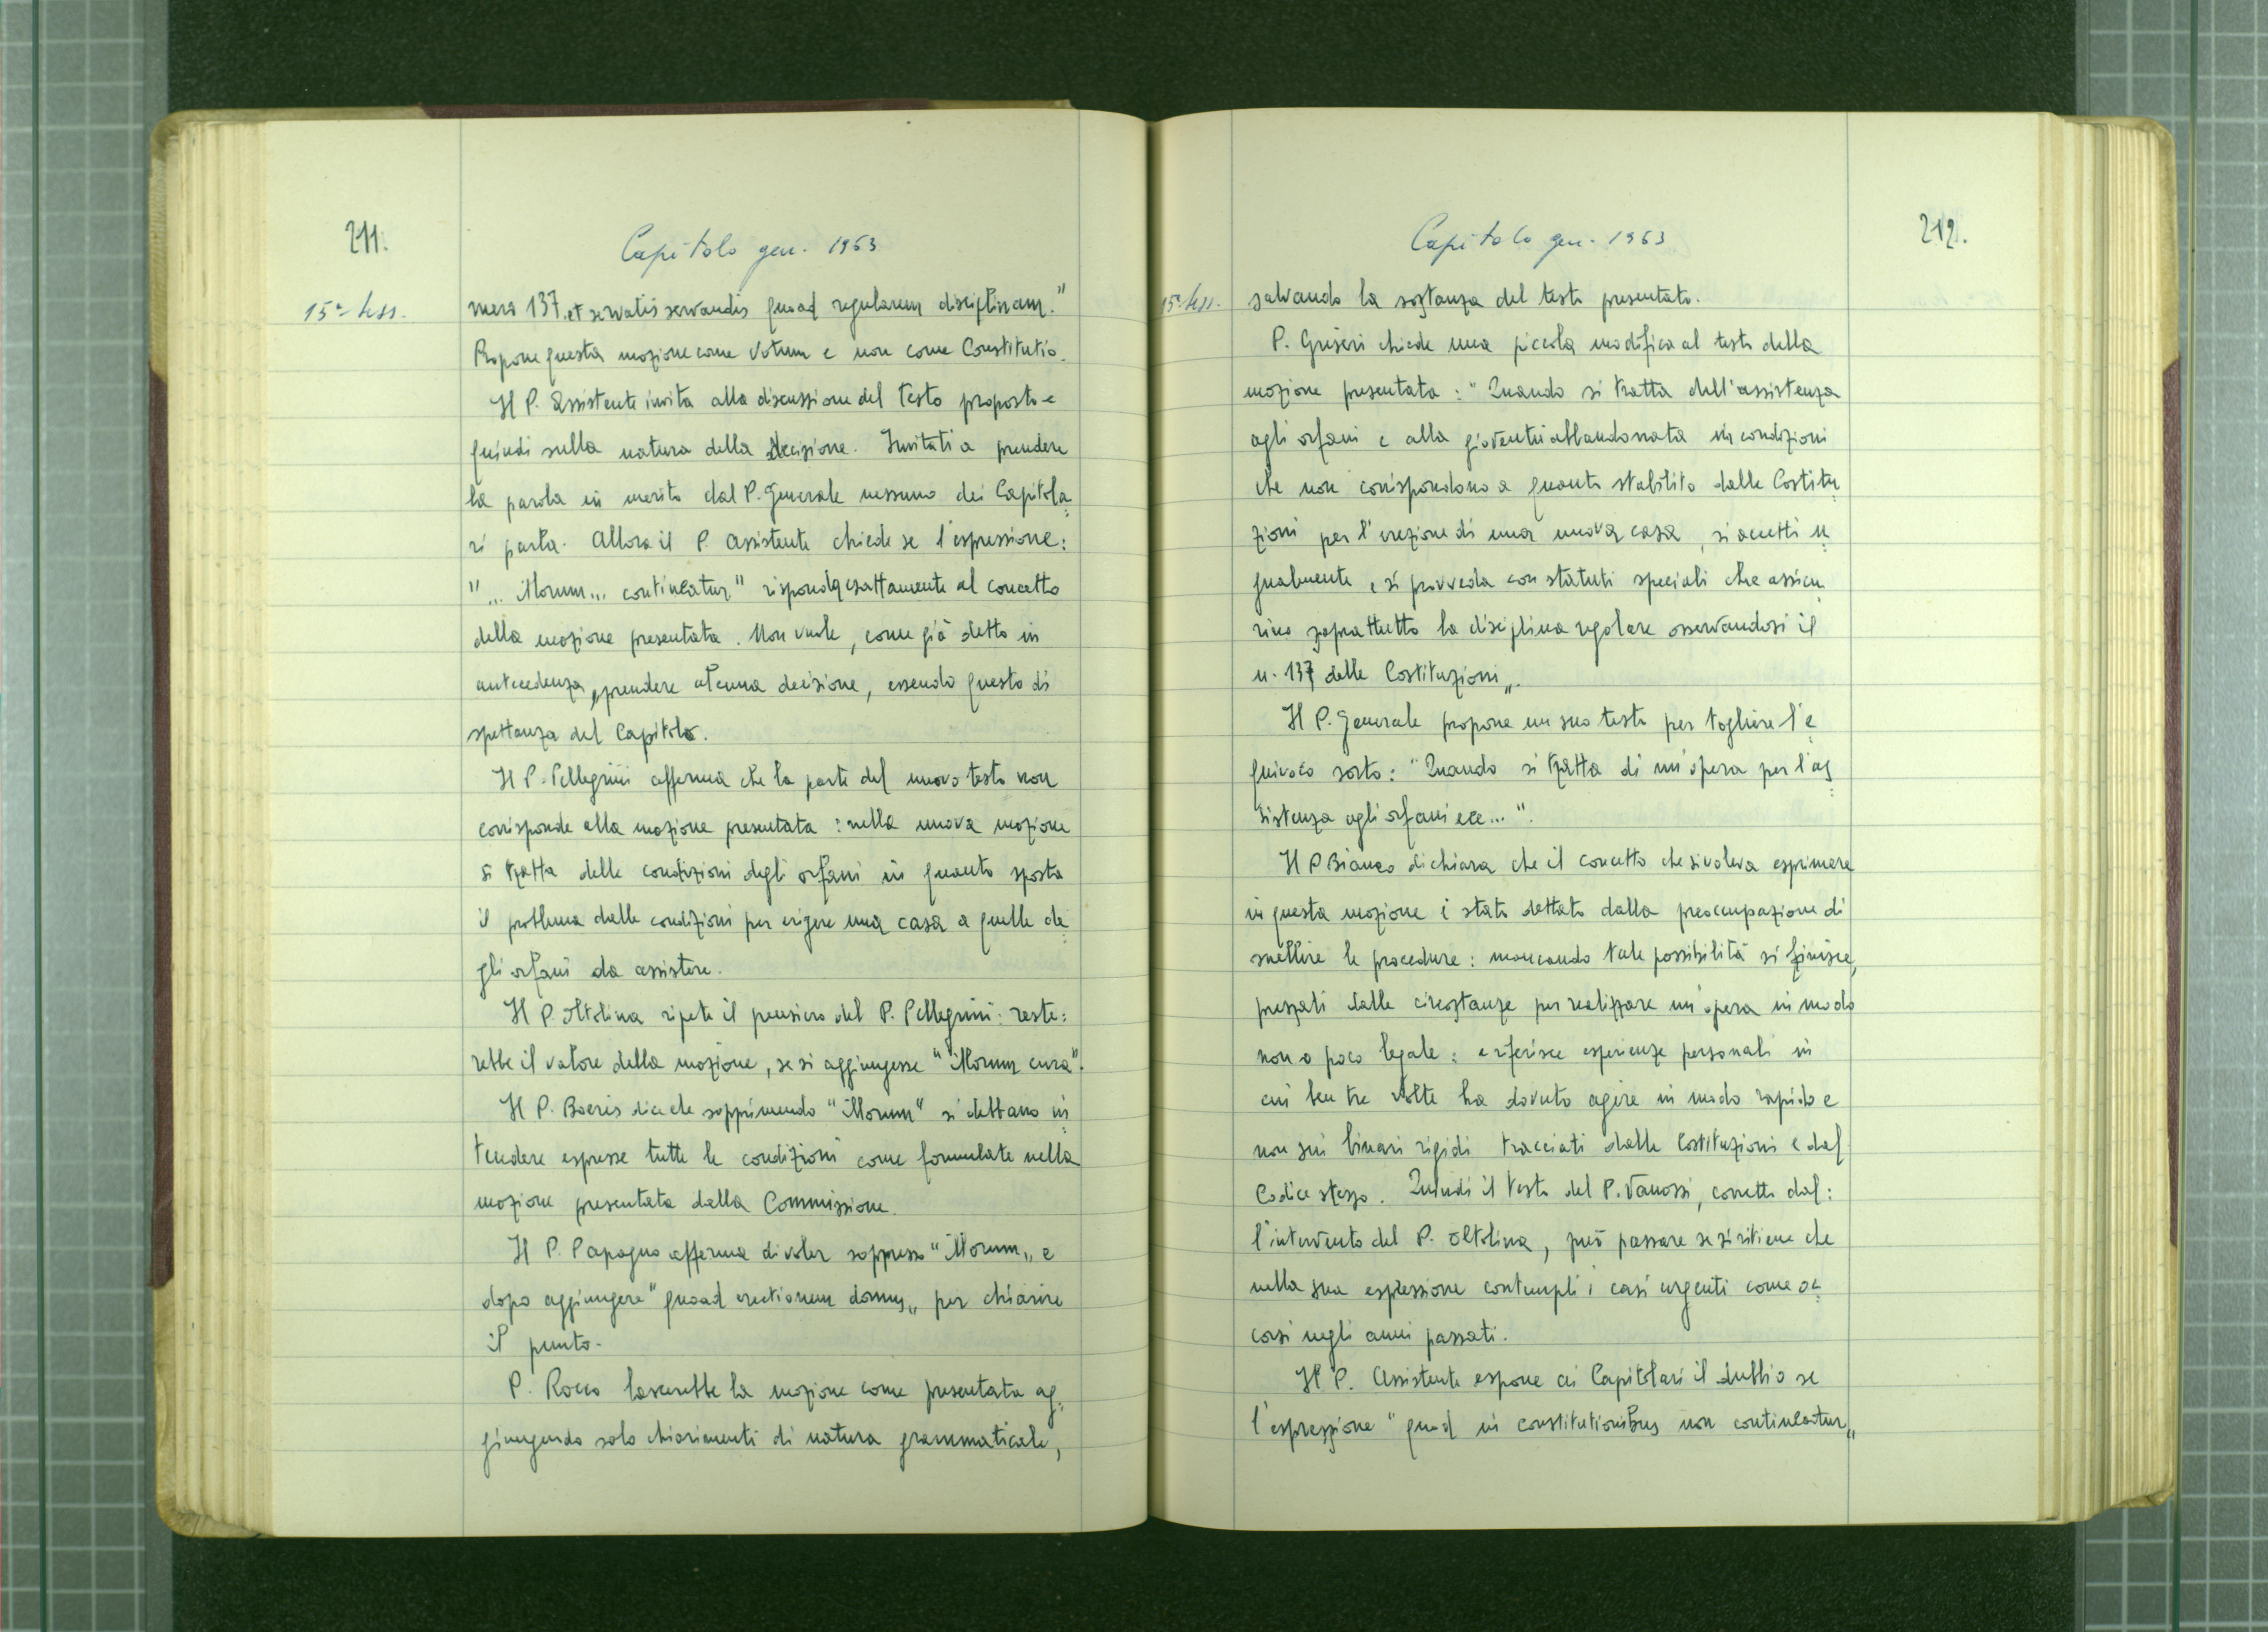 211.
Capitolo gen. 1963
15ª sess.
mero 137, et servatis servandis quoad regularem disciplinam."
Propone questa mozione come Votum e non come Constitutio.
Il P. Assistente invita alla discussione del testo proposto e
quindi sulla natura della decisione. Invitati a prendere
la parola in merito dal P. Generale nessuno dei Capitola=
ri parla. Allora il P. Assistente chiede se l'espressione:
"... illorum... contineatur" risponda esattamente al concetto
della mozione presentata. Non vuole, come già detto in
antecedenza, prendere alcuna decisione, essendo questo di
spettanza del Capitolo.
Il P. Pellegrini afferma che la parte del nuovo testo non
corrisponde alla mozione presentata: nella nuova mozione
si tratta delle condizioni degli orfani in quanto sposta
il problema dalle condizioni per erigere una casa a quelle de=
gli orfani da assistere.
Il P. Oltolina ripete il pensiero del P. Pellegrini: reste=
rebbe il valore della mozione, se si aggiungesse "illorum cura".
Il P. Boeris dice che sopprimendo "illorum" si debbano in=
tendere espresse tutte le condizioni come formulate nella
mozione presentata dalla Commissione.
Il P. Papagno afferma di voler soppresso "illorum„ e
dopo aggiungere "quoad erectionem domus„ per chiarire
il punto.
P. Rocco lascerebbe la mozione come presentata ag=
giungendo solo chiarimenti di natura grammaticale,
Capitolo gen. 1963
212.
15ª sess.
salvando la sostanza del testo presentato.
P. Griseri chiede una piccola modifica al testo della
mozione presentata: "Quando si tratta dell'assistenza
agli orfani e alla gioventù abbandonata in condizioni
che non corrispondono a quanto stabilito dalle Costitu=
zioni per l'erezione di una nuova casa, si accetti u=
gualmente e si provveda con statuti speciali che assicu=
rino soprattutto la disciplina regolare osservandosi il
n. 137 delle Costituzioni„.
Il P. Generale propone un suo testo per togliere l'e=
quivoco sorto: "Quando si tratta di un'opera per l'as=
sistenza agli orfani ecc...".
Il P. Bianco dichiara che il concetto che si voleva esprimere
in questa mozione è stato dettato dalla preoccupazione di
snellire le procedure: mancando tale possibilità si finisce,
pressati dalle circostanze per realizzare un'opera in modo
non o poco legale: e riferisce esperienze personali in
cui ben tre volte ha dovuto agire in modo rapido e
non sui binari rigidi tracciati dalle Costituzioni e dal
Codice stesso. Quindi il testo del P. Vanossi, corretto dal=
l'intervento del P. Oltolina, può passare se si ritiene che
nella sua espressione contempli i casi urgenti come oc=
corsi negli anni passati.
Il P. Assistente espone ai Capitolari il dubbio se
l'espressione "quod in constitutionibus non contineatur„